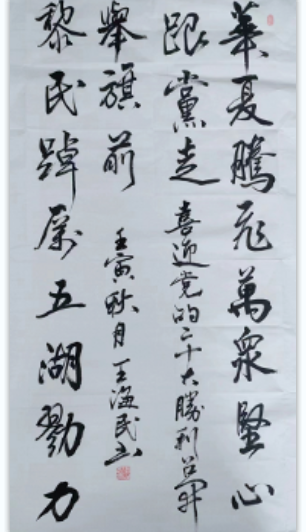 華夏騰飛萬衆堅心
跟黨走
黎民踔厲五湖勠力
舉旗前
喜迎党的二十大勝利召開
壬寅秋月王海民书